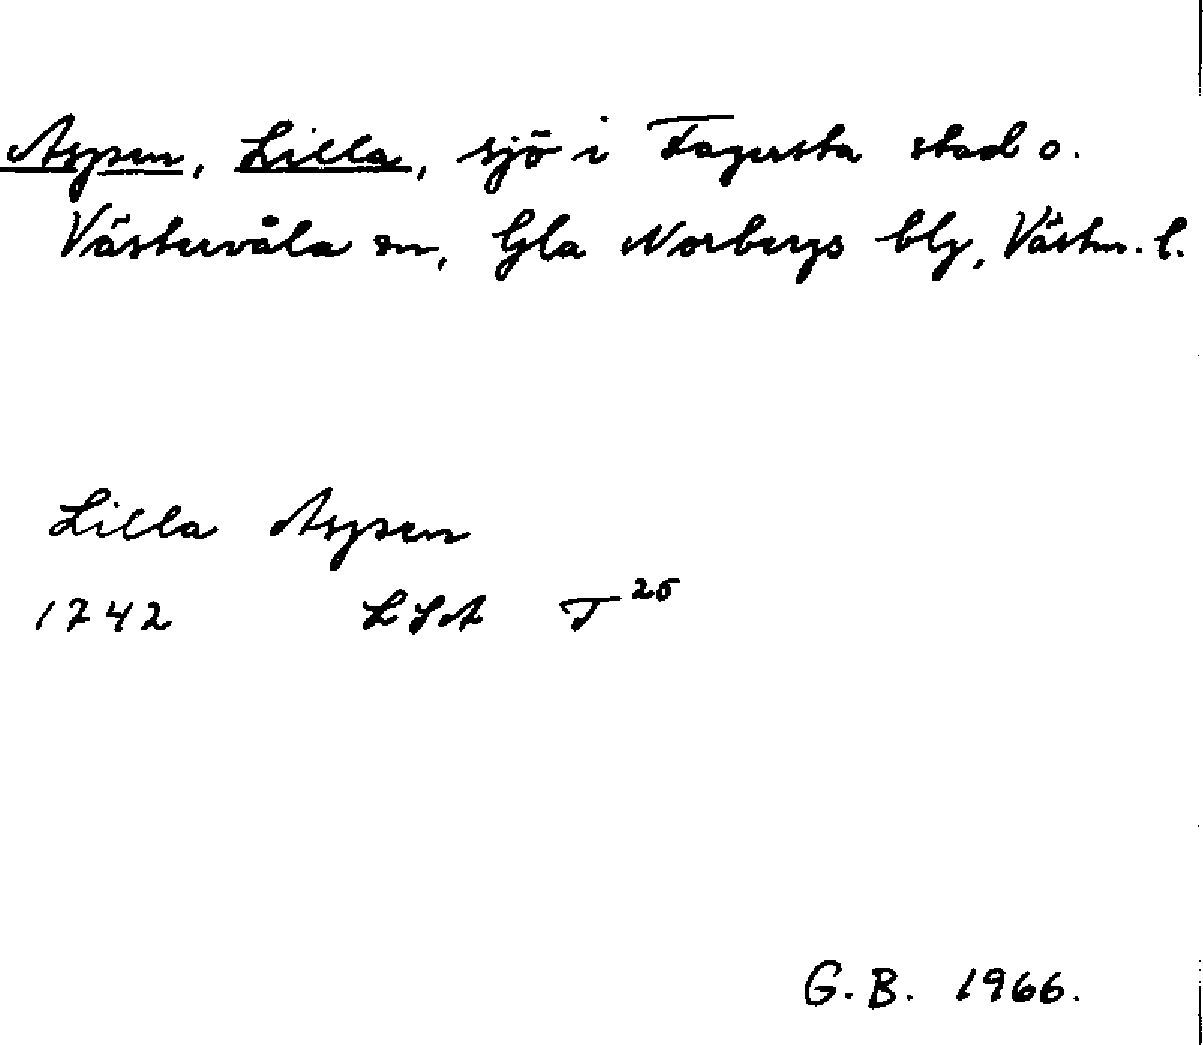 Aspen, Lilla, sjö i Fagersta stad o.
Västervåla sn, Gla Norbergs blg, Västm. l.
Lilla Aspen
1742 LSA T 25
G. B. 1966.